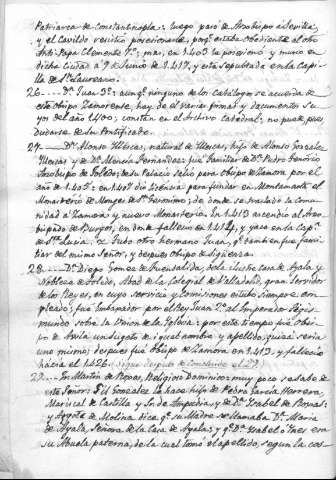 Patriarca de Constantinopla: luego pasó de Arzobispo à Sevilla,
y el Cavildo resistió posecionarle, porqe estaba obediente al otro
Anti-Papa Clemente 7º; mas, en 1.403 la posesionó y murió en
dicha Ciudad à 9 de Junio de 1.417, y està sepultado en la Capi-
lla de Sn Laureano.
26 Dn Juan 3º: aunqe ninguno de los Catálogos se acuerda de
este obispo Zamorense, hay de el varias firmas y documentos su-
yos del año 1.400; constan en el Archivo Catedral, no puede pues
dudarse de su Pontificado.
27 Dn Alonso Illescas, natural de Illescas, hijo de Alonso Gonzalez
Illescas y Dª Mencia Fernandez: fue familiar de Dn Pedro Tenorio
Arzobispo de Toledo; de su Palacio salió para obispo de Zamora por el
año de 1.403: en 1.407 dio licencia para fundar en Montamarta el
Monasterio de Monges de Sn Geronimo; de donde se trasladó la comuni-
dad à Zamora y nuevo Monasterio. En 1.413 ascendió al Arzo-
bispado de Burgos, en donde falleció en 1.414, y yace en la Capª
de Sta Lucia. Tubo otro hermano Juan, qe tambien fue fami-
liar del mismo Señor, y despues obispo de Sigüenza.
28 Dn Diego Gomez de Fuensalida, de la ilustre casa de Ayala y
Nobleza de Toledo, Abad de la Colegial de Valladolid, gran Servidor
de los Reyes, en cuyo servicio y comisiones estubo siempre em-
pleado; fue Embajador por el Rey Juan 2º al Emperador Segis-
mundo sobre la Union de la Iglesia: por este tiempo fue obis-
po de Avila uno de igual nombre y apellido, quizá sería
uno mismo; despues fue obispo de Zamora en 1.413 y falleció
hacia el 1.426.
29 Fr. Martin de Rojas, Religioso Dominico; muy poco se sabe de
este Señor: Gil Gonzalez la hace hijo de Pedro Garcia Herrera,
Mariscal de Castilla y Sr. de Ampudia, y de Dª Isabel de Rojas:
y Argote de Molina dice qe su Madre se llamaba Dª Maria
de Ayala, Señora de la Casa de Ayala; y qe Dª Isabel o Ines era
su Abuela paterna, de la cual tomó el apellido, segun la cos-